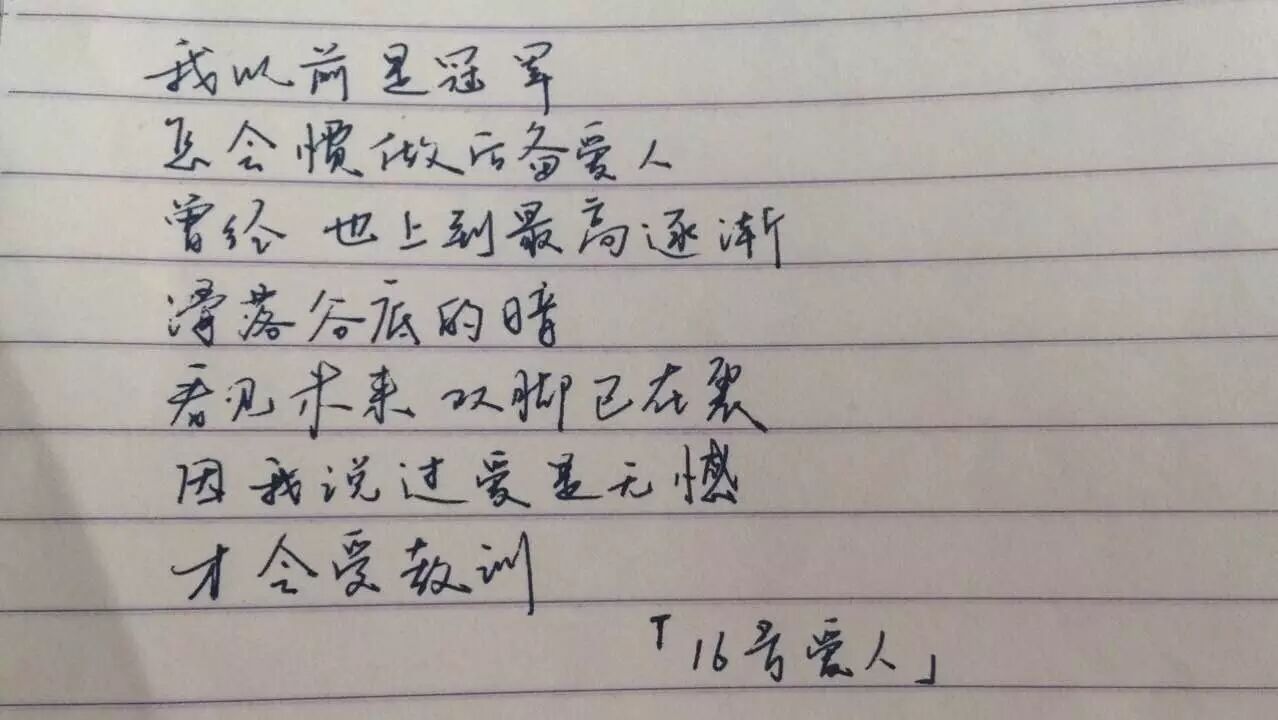 我以前是冠军
怎会惯做后备爱人
曾经 也上到最高逐渐
滑落谷底的暗
看见未来 双脚已在裂
因我说过爱是无憾
才会受教训
「16号爱人」